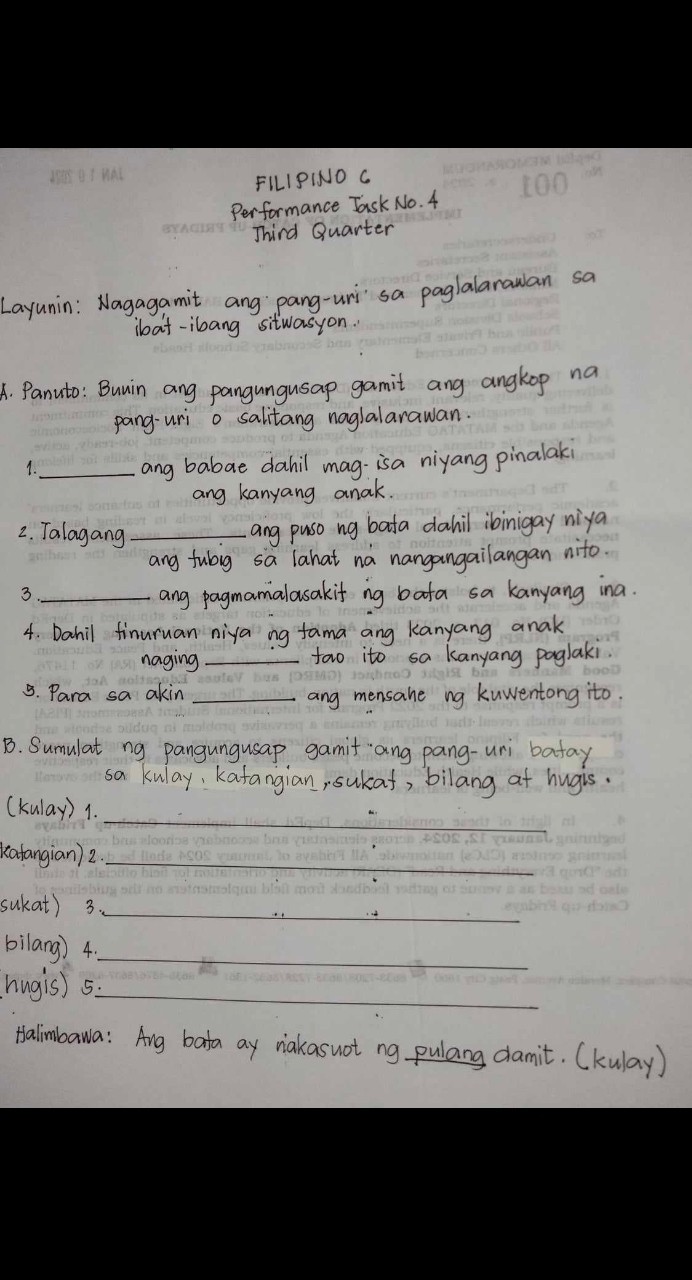 FILIPINO 6
Performance Task No. 4
Third Quarter
Layunin: Nagagamit ang pang-uri sa paglalarawan sa
ibat-ibang sitwasyon.
A. Panuto: Buuin ang pangungusap gamit ang angkop na
pang-uri o salitang naglalarawan.
1. ________ ang babae dahil mag-isa niyang pinalaki
ang kanyang anak.
2. Talagang ________ ang puso ng bata dahil ibinigay niya
ang tubig sa lahat na nangangailangan nito.
3. ________ ang pagmamalasakit ng bata sa kanyang ina.
4. Dahil tinuruan niya ng tama ang kanyang anak
naging ________ tao ito sa kanyang paglaki.
5. Para sa akin ________ ang mensahe ng kuwentong ito.
B. Sumulat ng pangungusap gamit ang pang-uri batay
sa kulay, katangian, sukat, bilang at hugis.
(kulay) 1. ________
katangian) 2. ________
sukat) 3. ________
bilang) 4. ________
hugis) 5. ________
Halimbawa: Ang bata ay nakasuot ng pulang damit. (kulay)